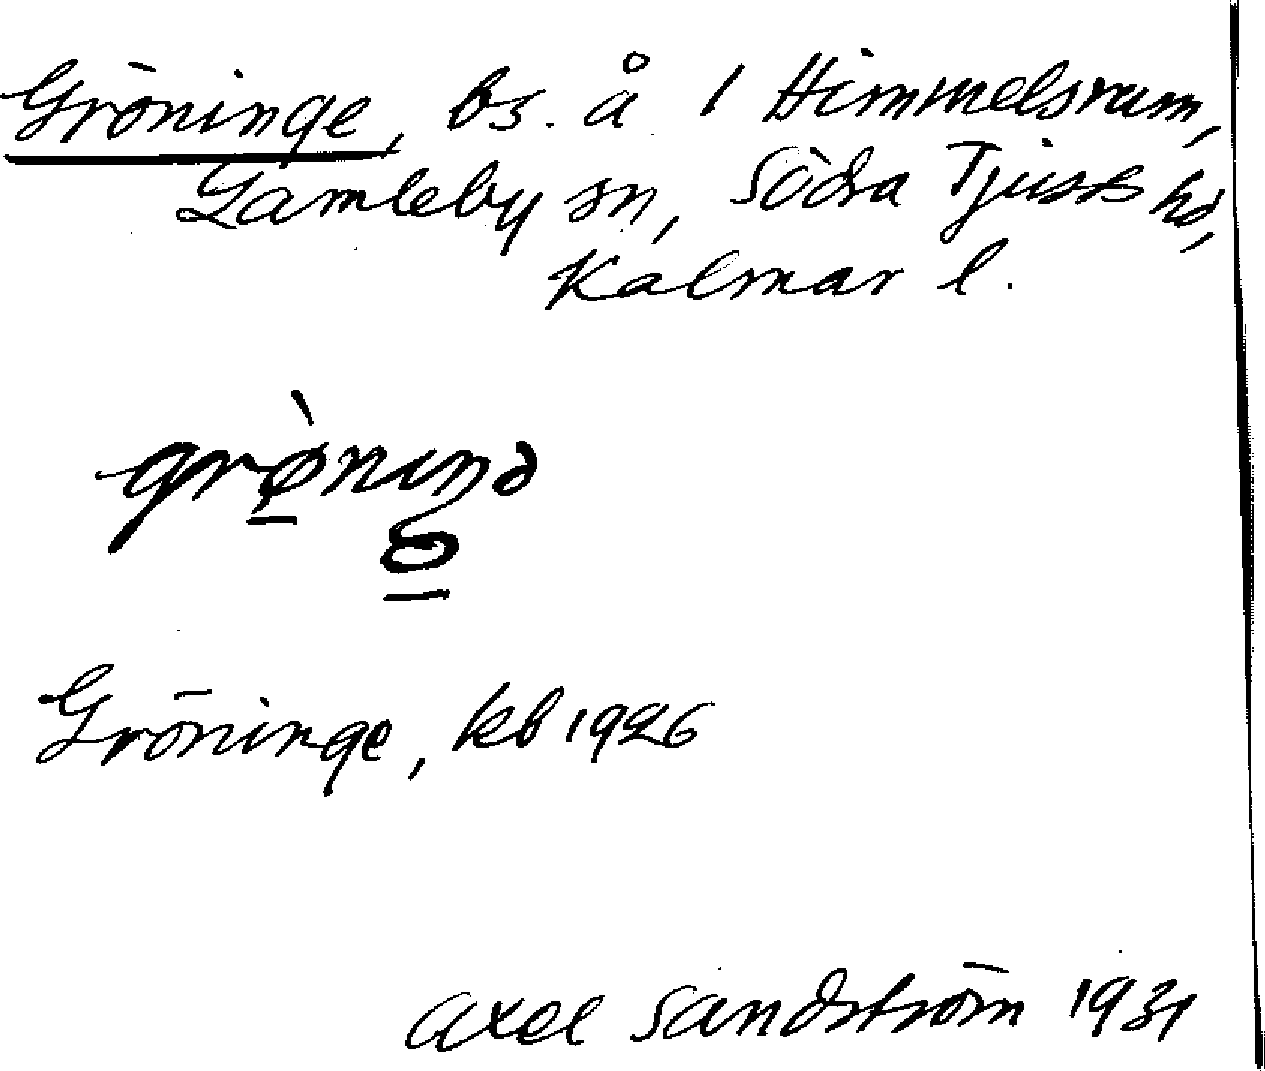 Gröninge, bs. å 1 Himmelsrum,
Gamleby sn, Södra Tjusts hd,
Kalmar l.
grø̀niŋə
Gröninge, kb 1926
Axel Sandström 1931